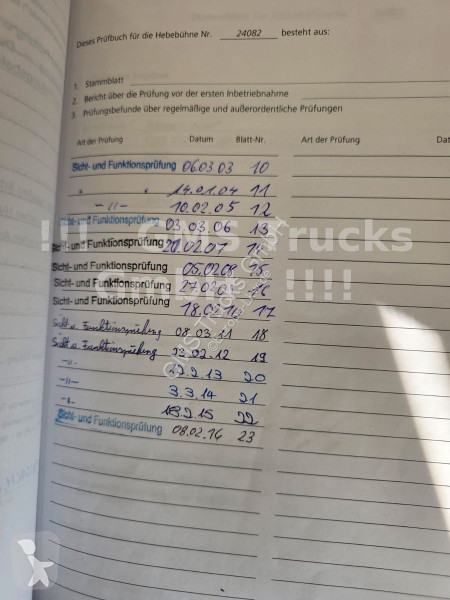 Dieses Prüfbuch für die Hebebühne Nr. 24082 besteht aus:
1. Stammblatt
2. Bericht über die Prüfung vor der ersten Inbetriebnahme
3. Prüfungsbefunde über regelmäßige und außerordentliche Prüfungen
Art der Prüfung Datum Blatt-Nr. Art der Prüfung
Sicht- und Funktionsprüfung 06.03 03 10
" " 14.01.04 11
-"- 10.02.05 12
Sicht- und Funktionsprüfung 03.03.06 13
Sicht- und Funktionsprüfung 20.02.07 14
Sicht- und Funktionsprüfung 05.02.08 15
Sicht- und Funktionsprüfung 27.02 16
Sicht- und Funktionsprüfung 18.02.10 17
Sicht u. Funktionsprüfung 08.03.11 18
Sicht u. Funktionsprüfung 23.02.12 19
-"- 22.2.13 20
-"- 3.3.14 21
-"- 2.15 22
Sicht- und Funktionsprüfung 08.02.16 23
!!! GMS Trucks
GmbH !!!!
GMS Trucks GmbH